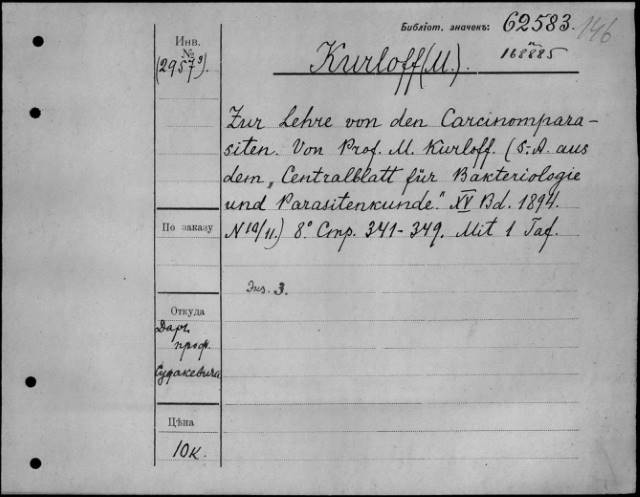 Библіот. значекъ: 62583. 146
Инв.
№
(2957³).
Kurloff (M.).
168885
Zur Lehre von den Carcinompara-
siten. Von Prof. M. Kurloff. (S.-A. aus
dem „Centralblatt für Bakteriologie
und Parasitenkunde." XV Bd. 1894.
N 10/11.) 8° Стр. 341-349. Mit 1 Taf.
По заказу
Экз. 3.
Откуда
Даръ
проф.
Судакевича
Цѣна
10к.